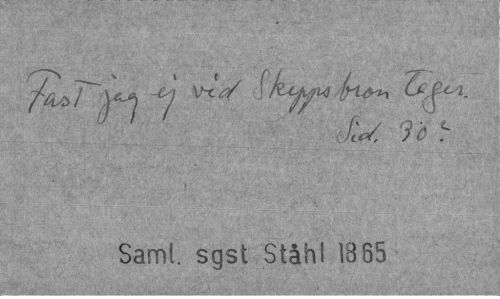 Fast jag ej vid Skeppsbron läger.
Sid. 30?
Saml. sgst Ståhl 1865